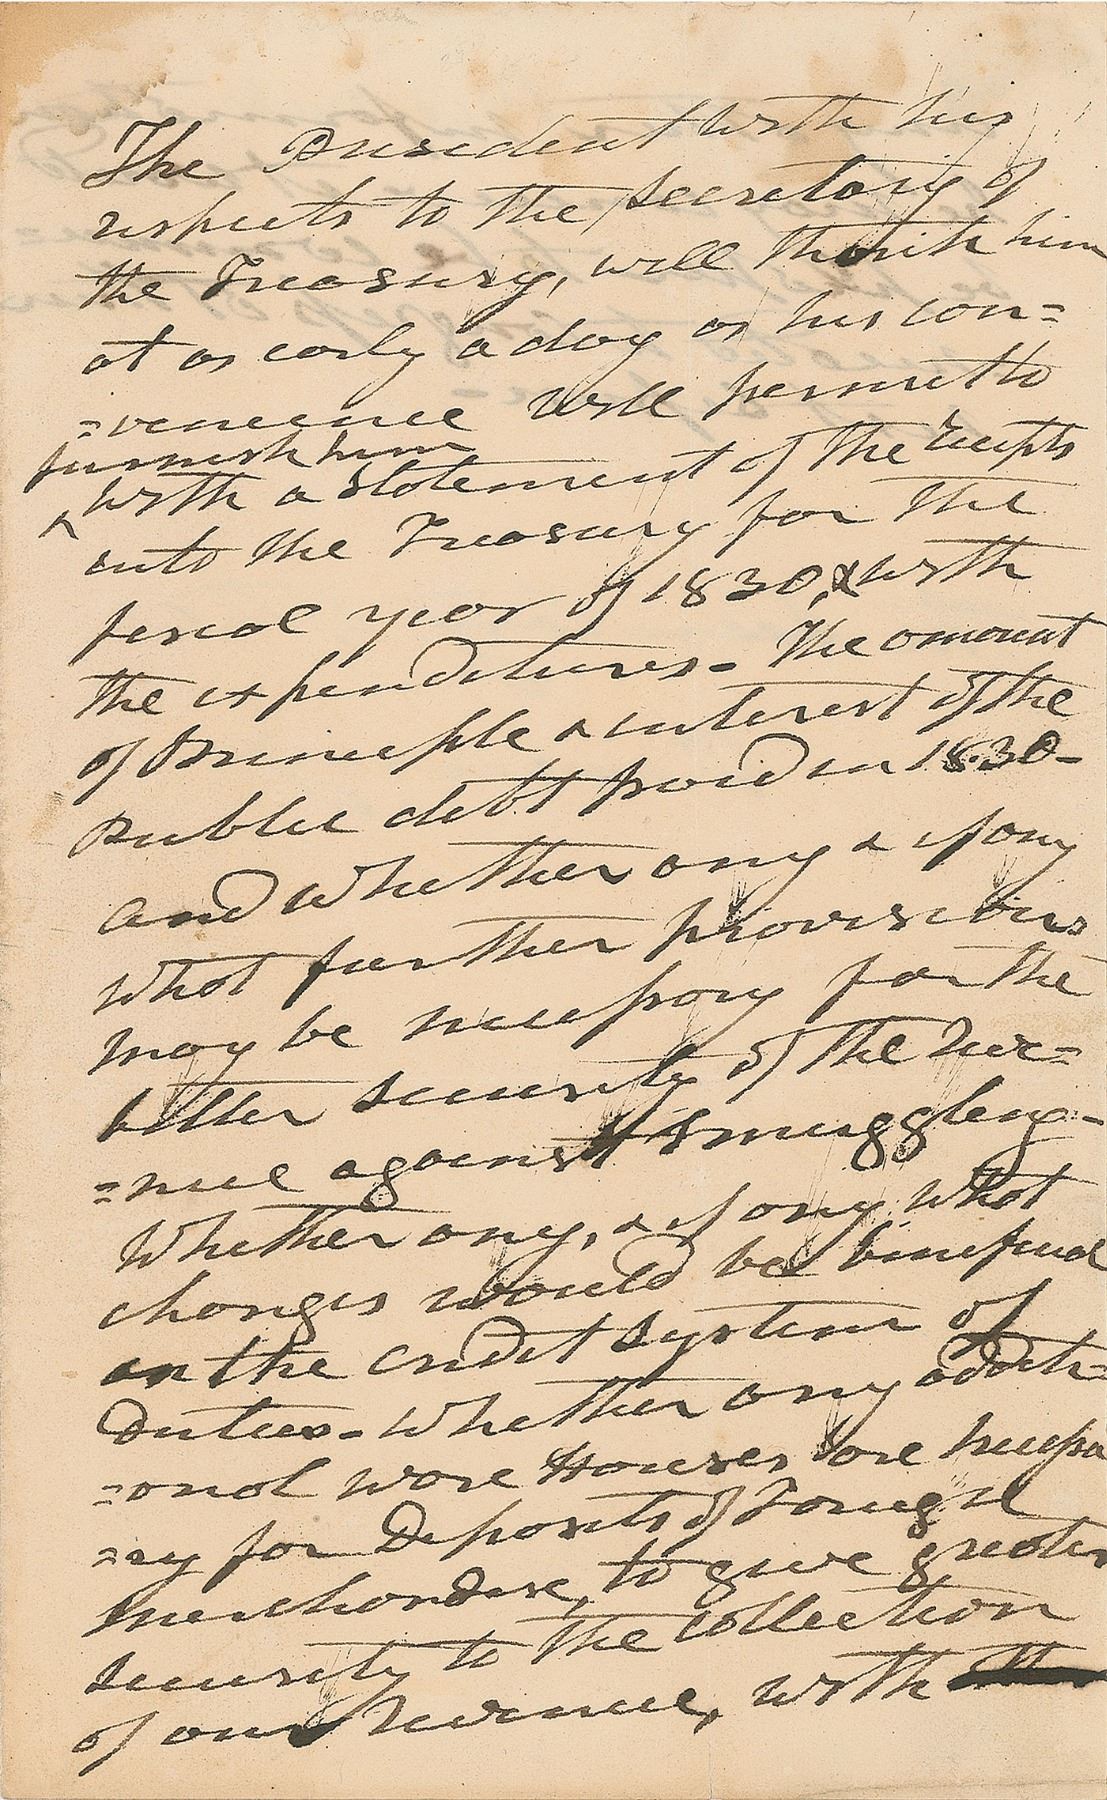 The President with his
respects to the Secretary of
the Treasury, will thank him
at as early a day as his con=
=venience will permit to
furnish him
^ with a statement of the receipts
into the Treasury for the
fiscal year of 1830, & with
the expenditures - The amount
of Principle & interest of the
Public debt paid in 1830 -
and whether any & if any
what further provisions
may be necessary for the
better security of the reve=
=nue against smuggleng -
Whether any, & if any what
changes would be beneficial
in the credit system of
Duties - Whether any additi=
=onal ware Houses are necessa
=ry for Deposits of Foreign
merchandise, to give greater
security to the collection
of our Revenue, with